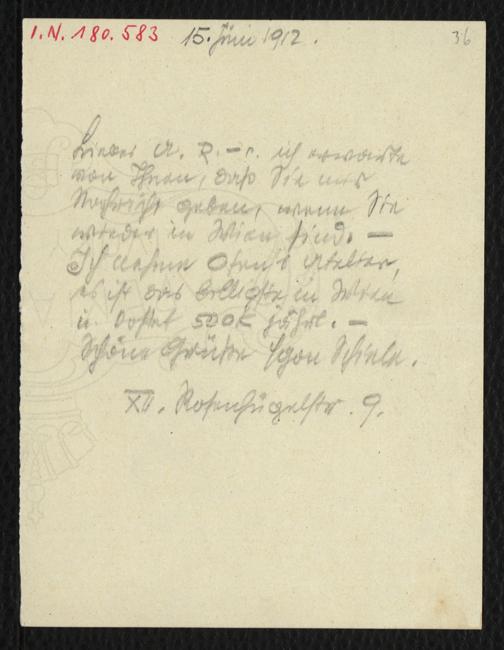 I.N. 180.583
15. Juni 1912.
36
Lieber A. R.–r. ich erwarte
von Ihnen, daß Sie mir
Nachricht geben, wenn Sie
wieder in Wien sind. —
Ich nehme Osen's Atelier,
es ist das billigste in Wien
u. kostet 500K jährl. —
Schöne Grüße Egon Schiele.
XII. Rosenhügelstr. 9.